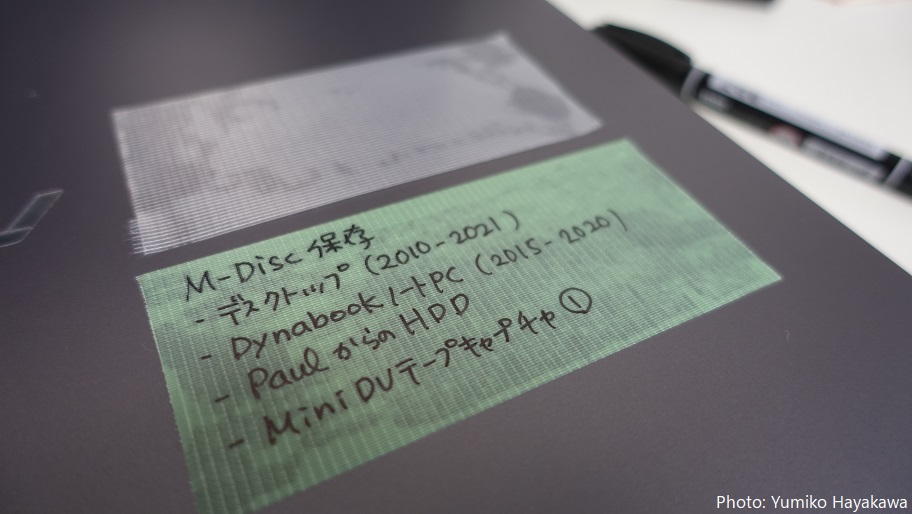 M-Disc 保存
- デスクトップ (2010-2021)
- Dynabook ノートPC (2015-2020)
- Paul からの HDD
- Mini DVテープキャプチャ ①
Photo: Yumiko Hayakawa